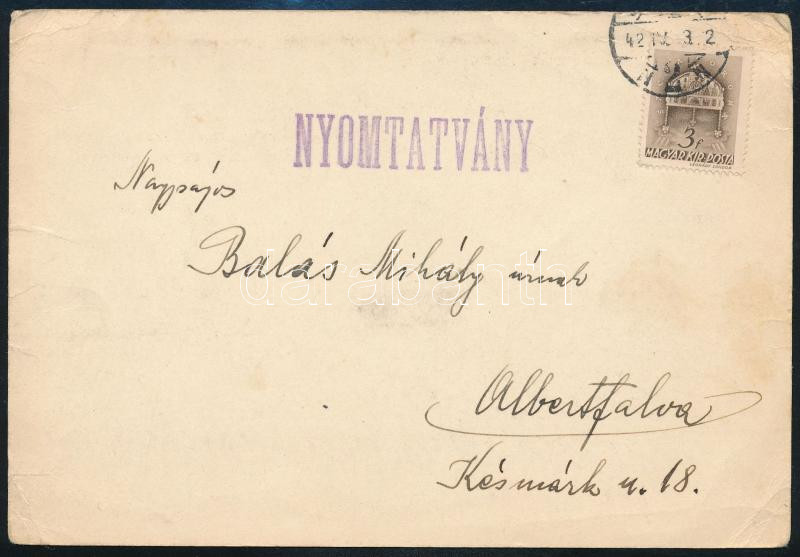 42 IV. 3. 2
3f
MAGYAR KIR. POSTA
NYOMTATVÁNY
Nagyságos
Balás Mihály úrnak
darabanth
Albertfalva
Késmárk u. 18.